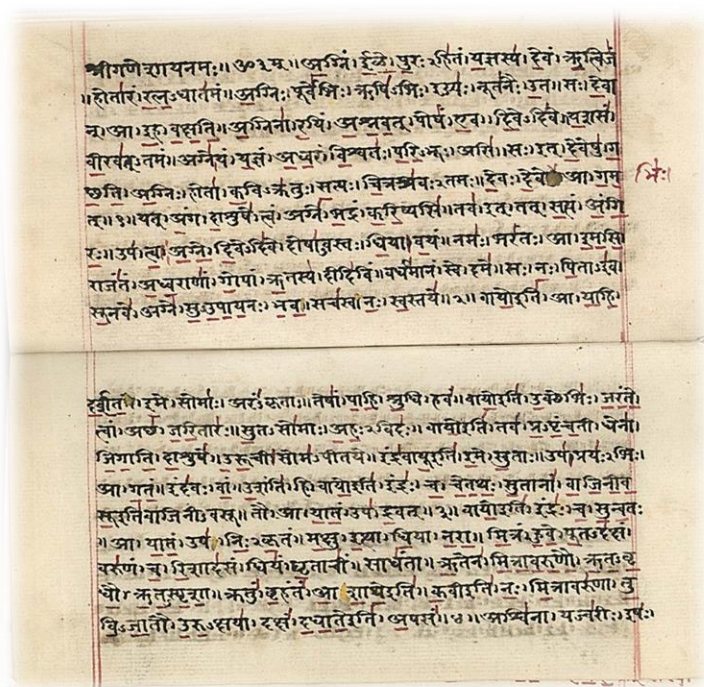 श्रीगणेशायनमः॥ॐ३म्॥ अग्निं। ईळे। पुरःऽहितं। यज्ञस्य। देवं। ऋत्विजं
॥होतारं। रत्नऽधातमं॥ अग्निः। पूर्वेभिः। ऋषिऽभिः। ईड्यः। नूतनैः। उत॥ सः। देवा
न्। आ। इह। वक्षति॥ अग्निना। रयिं। अश्नवत्। पोषं। एव। दिवेऽदिवे। यशसं।
वीरवत्ऽतमं॥ अग्ने। यं। यज्ञं। अध्वरं। विश्वतः। परिऽभूः। असि॥ सः। इत्। देवेषु। ग
छति॥ अग्निः। होता। कविऽक्रतुः। सत्यः। चित्रश्रवःऽतमः॥ देवः। देवे आ। गम
भिः।
त्॥१॥ यत्। अंग। दाशुषे। त्वं। अग्ने। भद्रं। करिष्यसि॥ तव। इत्। तत्। सत्यं। अंगि
रः॥ उप। त्वा। अग्ने। दिवेऽदिवे। दोषाऽवस्तः। धिया। वयं॥ नमः। भरंतः। आ। इमसि
राजंतं। अध्वराणां। गोपां। ऋतस्य। दीदिविं॥ वर्धमानं। स्वे। दमे॥ सः। नः। पिताऽइव।
सूनवे। अग्ने। सुऽउपायनः। भव॥ सचस्व। नः। स्वस्तये॥२॥ वायोइति। आ। याहि।
दर्शत। इमे। सोमाः। अरंऽकृताः॥ तेषां। पाहि। श्रुधि। हवं॥ वायोइति। उक्थेभिः। जरंते।
त्वां। अछ। जरितारः॥ सुतऽसोमाः। अहःऽविदः॥ वायोइति। तव। प्रऽपृंचती। धेना।
जिगाति। दाशुषे॥ उरूची। सोमऽपीतये॥ इंद्रवायूइति। इमे। सुताः॥ उप। प्रयःऽभिः।
आ। गतं॥ इंदवः। वां। उशंति। हि॥ वायोइति। इंद्रः। च। चेतथः। सुतानां। वाजिनीव
सूइतिवाजिनीऽवसू॥ तौ। आ। यातं। उप। द्रवत्॥३॥ वायोइति। इंद्रः। च। सुन्वतः
॥आ। यातं। उप। निःऽकृतं॥ मक्षु। इत्था। धिया। नरा॥ मित्रं। हुवे। पूतऽदक्षं।
वरुणं। च। रिशादसं॥ धियं। घृताचीं। साधंता॥ ऋतेन। मित्रावरुणौ। ऋतऽवृ
धौ। ऋतऽस्पृशा॥ क्रतुं। बृहंतं। आ। शाथेइति॥ कवीइति। नः। मित्रावरुणा। तु
विऽजातौ। उरुऽक्षया॥ दक्षं। दधातेइति। अपसं॥४॥ अश्विना। यज्वरीः। इषः।